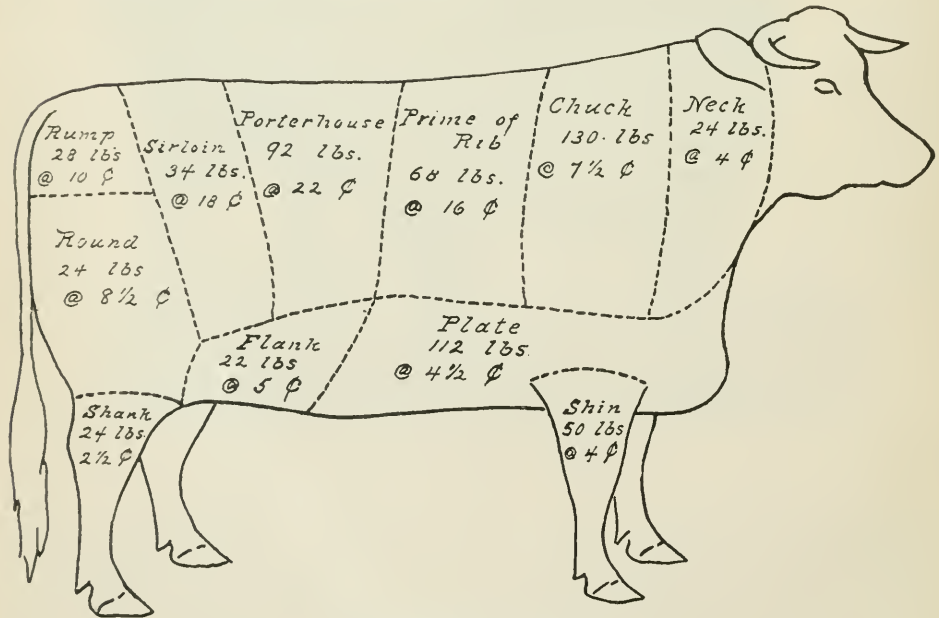 Rump
28 lbs
@ 10 ¢
Sirloin
34 lbs.
@ 18 ¢
Porterhouse
92 lbs.
@ 22 ¢
Prime of
Rib
68 lbs.
@ 16 ¢
Chuck
130 lbs
@ 7 1/2 ¢
Neck
24 lbs.
@ 4 ¢
Round
24 lbs
@ 8 1/2 ¢
Flank
22 lbs
@ 5 ¢
Plate
112 lbs.
@ 4 1/2 ¢
Shank
24 lbs.
2 1/2 ¢
Shin
50 lbs
@ 4 ¢